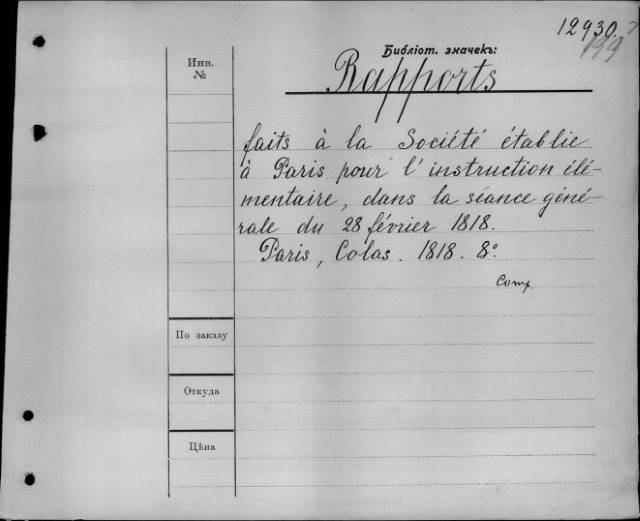 12930.
199
Библіот. значекъ:
Rapports
Инв.
№
faits à la Société établie
à Paris pour l'instruction élé-
mentaire, dans la séance géné-
rale du 28 février 1818.
Paris, Colas. 1818. 8º
Comp.
По заказу
Откуда
Цѣна